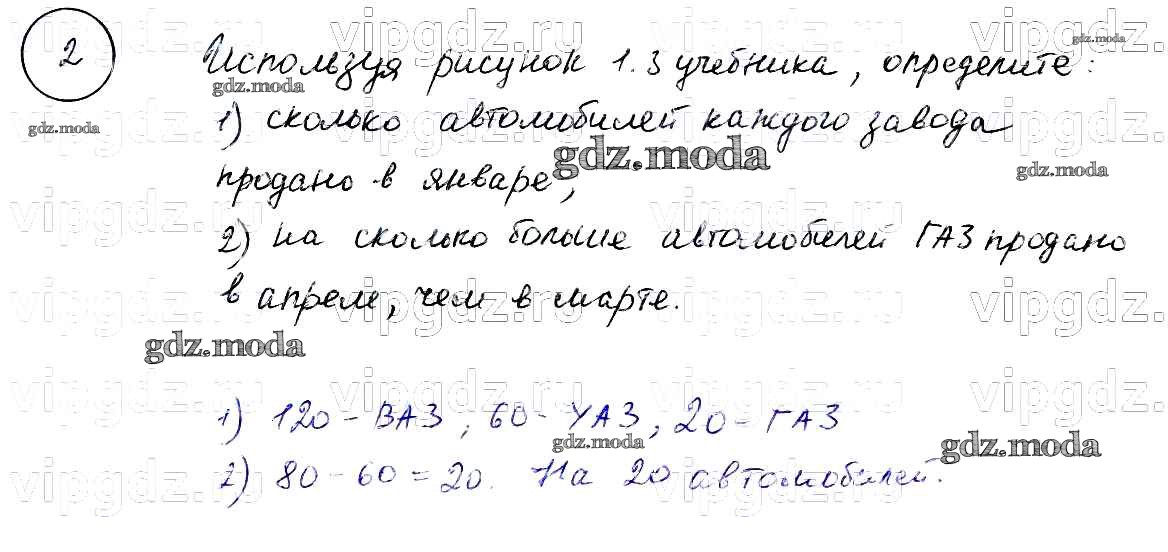 2
Используя рисунок 1.3 учебника, определите:
1) сколько автомобилей каждого завода
продано в январе;
2) на сколько больше автомобилей ГАЗ продано
в апреле, чем в марте.
1) 120 - ВАЗ, 60 - УАЗ, 20 - ГАЗ
2) 80 - 60 = 20. На 20 автомобилей.
vipgdz.ru
gdz.moda